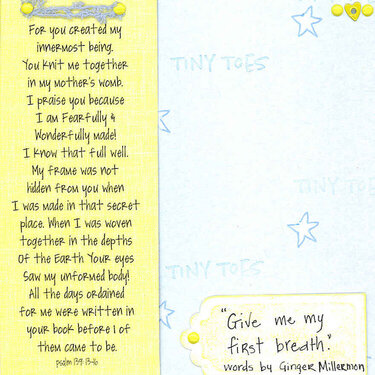 For you created my
innermost being.
You knit me together
in my mother's womb.
I praise you because
I am Fearfully &
Wonderfully made!
I know that full well.
My frame was not
hidden from you when
I was made in that secret
place. When I was woven
together in the depths
Of the Earth Your eyes
Saw my unformed body!
All the days ordained
for me were written in
your book before 1 of
them came to be.
psalm 139: 13-16
TINY TOES
TINY TOES
TINY TOES
"Give me my
first breath."
words by Ginger Millermon